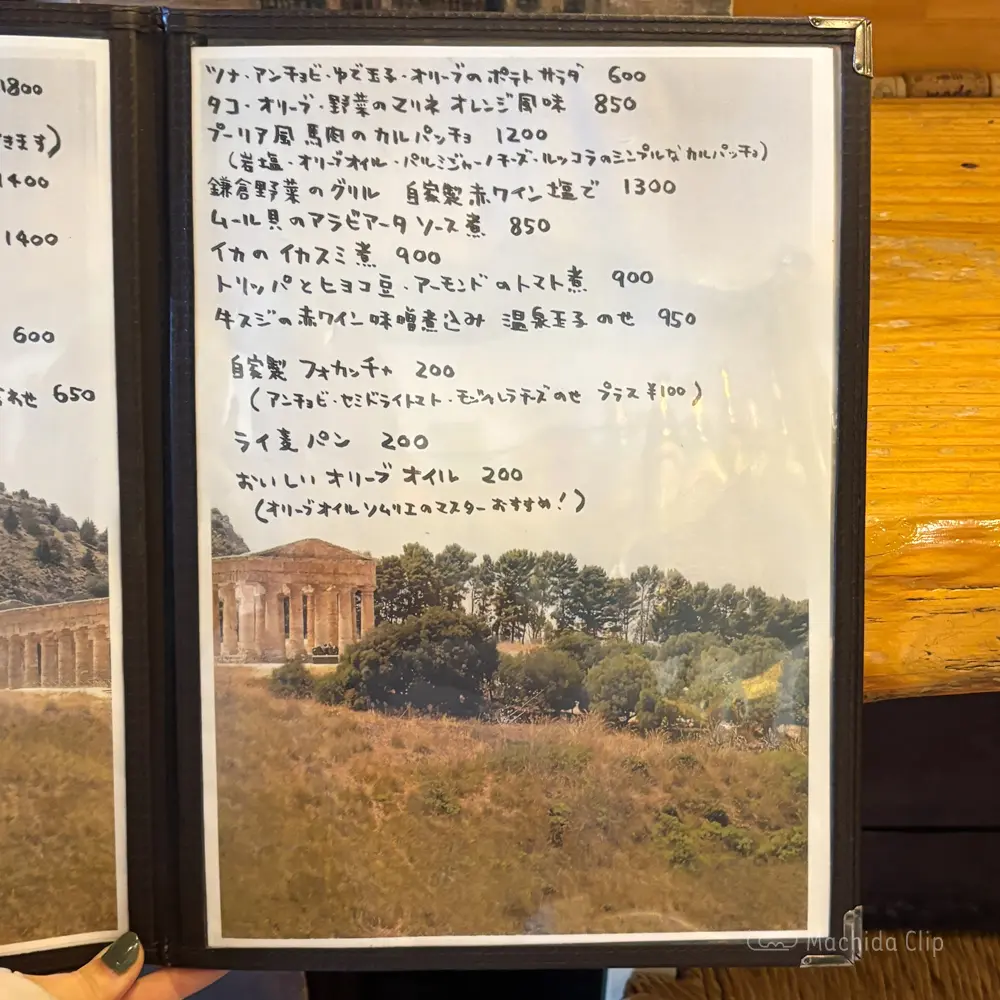 1800
きます)
1400
1400
600
わせ 650
ツナ・アンチョビ・ゆで玉子・オリーブのポテトサラダ 600
タコ・オリーブ・野菜のマリネ オレンジ風味 850
プーリア風 馬肉のカルパッチョ 1200
(岩塩・オリーブオイル・パルミジャーノチーズ・ルッコラのシンプルなカルパッチョ)
鎌倉野菜のグリル 自家製赤ワイン塩で 1300
ムール貝のアラビアータソース煮 850
イカのイカスミ煮 900
トリッパとヒヨコ豆・アーモンドのトマト煮 900
牛スジの赤ワイン味噌煮込み 温泉玉子のせ 950
自家製フォカッチャ 200
(アンチョビ・セミドライトマト・モッツァレラチーズのせ プラス¥100)
ライ麦パン 200
おいしいオリーブオイル 200
(オリーブオイルソムリエのマスターおすすめ!)
Machida Clip